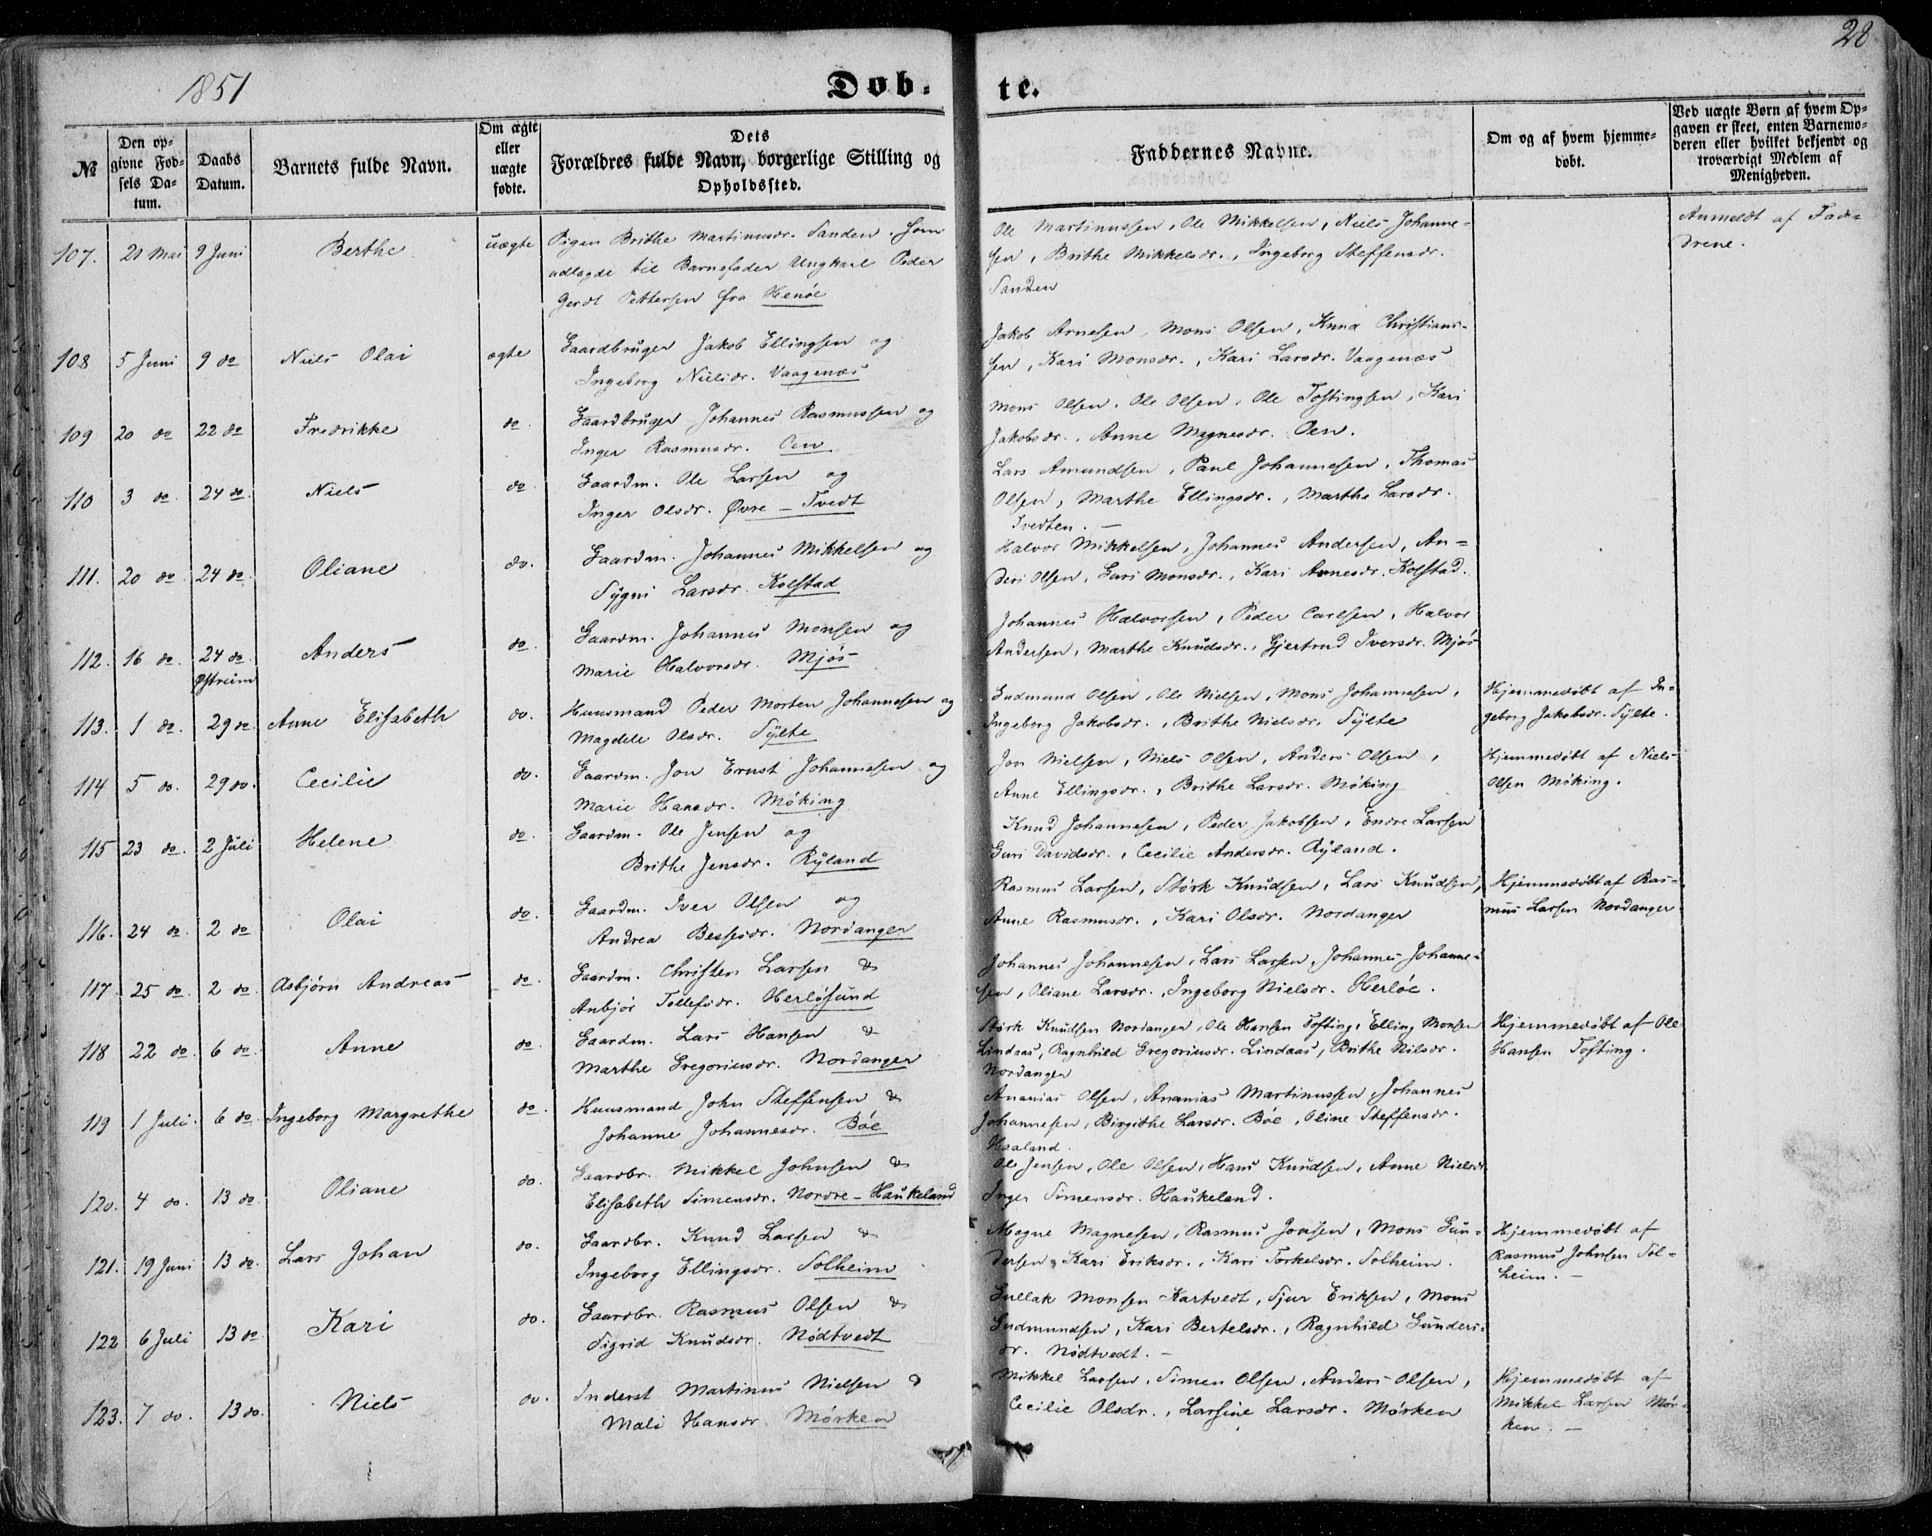 28
1851
Døb- te.
№
Den op-
givne Fød-
sels Da-
tum.
Daabs
Datum.
Barnets fulde Navn.
Om ægte
eller
uægte
fødte.
Dets
Forældres fulde Navn, borgerlige Stilling og
Opholdssted.
Faddernes Navne.
Om og af hvem hjemme-
døbt.
Ved uægte Børn af hvem Op-
gaven er skeet, enten Barnemo-
deren eller hvilket bekjendt og
troværdigt Medlem af
Menigheden.
107. 21 Mai 9 Juni Berthe uægte Pigen Brithe Martinusdr. Sanden. Som
udlagde til Barnefader Ungkarl Peder
Gerdt Pettersen fra Henöe
Ole Martinussen, Ole Mikkelsen, Niels Johanne-
sen, Brithe Mikkelsdr., Ingeborg Steffensdr.
Sanden
Anmeldt af Fad-
drene.
108 5 Juni 9 do Niels Olai ægte Gaardbruger Jakob Ellingsen og
Ingeborg Nielsdr. Vaagenæs
Jakob Arnesen, Mons Olsen, Knud Christians-
sen, Kari Monsdr., Kari Larsdr. Vaagenæs
109 20 do 22 do Fredrikke do. Gaardbruger Johannes Rasmussen og
Inger Rasmusdr. Oen
Mons Olsen, Ole Olsen, Ole Toftingsen, Kari
Jakobsdr., Anne Magnesdr. Oen.
110 3 do. 24 do. Niels do Gaardm. Ole Larsen og
Inger Olsdr. Øvre - Tvedt
Lars Amundsen, Paul Johannesen, Thomas
Olsen, Marthe Ellingsdr., Marthe Larsdr.
Tvedten. —
111. 20 do 24 do. Oliane do. Gaardm. Johannes Mikkelsen og
Sygni Larsdr. Kolstad
Halvor Mikkelsen, Johannes Andersen, An-
ders Olsen, Gari Monsdr., Kari Annesdr. Kolstad.
112. 16 do. 24 do.
Østreim Anders do Gaardm. Johannes Monsen og
Marie Halvorsdr. Mjøs
Johannes Halvorsen, Peder Carlsen, Halvor
Andersen, Marthe Knudsdr., Gjertrud Iversdr. Mjøs
113. 1 do. 29 do. Anne Elisabeth do. Huusmand Peder Morten Johannesen og
Magdele Olsdr. Sylte
Gudmund Olsen, Ole Nielsen, Mons Johannesen,
Ingeborg Jakobsdr., Brithe Nielsdr. Sylte
Hjemmedøbt af In-
geborg Jakobsdr. Sylte.
114 5 do. 29 do. Cecilie do. Gaardm. Jon Ernst Johannesen og
Marie Hansdr. Møking
Jon Nielsen, Niels Olsen, Anders Olsen,
Anne Ellingsdr., Brithe Larsdr. Møking
Hjemmedøbt af Niels
Olsen Møking.
115 23 do. 2 Juli Helene do. Gaardm. Ole Jensen og
Brithe Jensdr. Ryland
Knud Johannesen, Peder Jakobsen, Endre Larsen
Guri Davidsdr., Cecilie Andersdr. Ryland.
116. 24 do. 2 do Olai do. Gaardm. Iver Olsen og
Andrea Bessesdr. Nordanger
Rasmus Larsen, Størk Knudsen, Lars Knudsen,
Anne Rasmusdr., Kari Olsdr. Nordanger
Hjemmedøbt af Ras-
mus Larsen Nordanger
117. 25 do 2 do. Asbjørn Andreas do. Gaardm. Christen Larsen &
Anbjør Tollefsdr. Herløsund
Johannes Johannesen, Lars Larsen, Johannes Johanne-
sen, Oliane Larsdr., Ingeborg Nielsdr. Herløe.
118 22 do. 6 do. Anne do. Gaardm. Lars Hansen &
Marthe Gregoriusdr. Nordanger
Størk Knudsen Nordanger, Ole Hansen Tofting, Elling Monsen
Lindaas, Ragnhild Gregoriusdr. Lindaas, Brithe Nilsdr.
Nordanger
Hjemmedøbt af Ole
Hansen Tofting.
119 1 Juli. 6 do. Ingeborg Margrethe do. Huusmand John Steffensen &
Johanne Johannesdr. Böe
Ananias Olsen, Ananias Martinussen, Johannes
Johannesen, Birgithe Larsdr. Böe, Oline Steffensdr.
Haaland.
120. 4 do. 13 do. Oliane do. Gaardbr. Mikkel Johnsen &
Elisabeth Simensdr. Nordre - Haukeland
Ole Jensen, Ole Olsen, Hans Knudsen, Anne Nielsdr
Inger Simensdr. Haukeland.
121. 19 Juni 13 do. Lars Johan do. Gaardbr. Knud Larsen &
Ingeborg Ellingsdr. Solheim
Magne Magnesen, Rasmus Jonsen, Mons Gun-
dersen, Kari Eriksdr., Kari Torkelsdr. Solheim.
Hjemmedøbt af
Rasmus Johnsen Sol-
heim. —
122 6 Juli 13 do Kari do. Gaardbr. Rasmus Olsen &
Sigrid Knudsdr. Nødtvedt
Gullak Monsen Kartvedt, Sjur Eriksen, Mons
Gudmundsen, Kari Bertelsdr., Ragnhild Gunders-
dr. Nødtvedt. —
123. 7 do. 13 do. Niels do. Inderst Martinus Nielsen &
Mali Hansdr. Mørken
Mikkel Larsen, Simen Olsen, Anders Olsen,
Cecilie Olsdr., Larsine Larsdr. Mørken
Hjemmedøbt af
Mikkel Larsen Mør-
ken. —